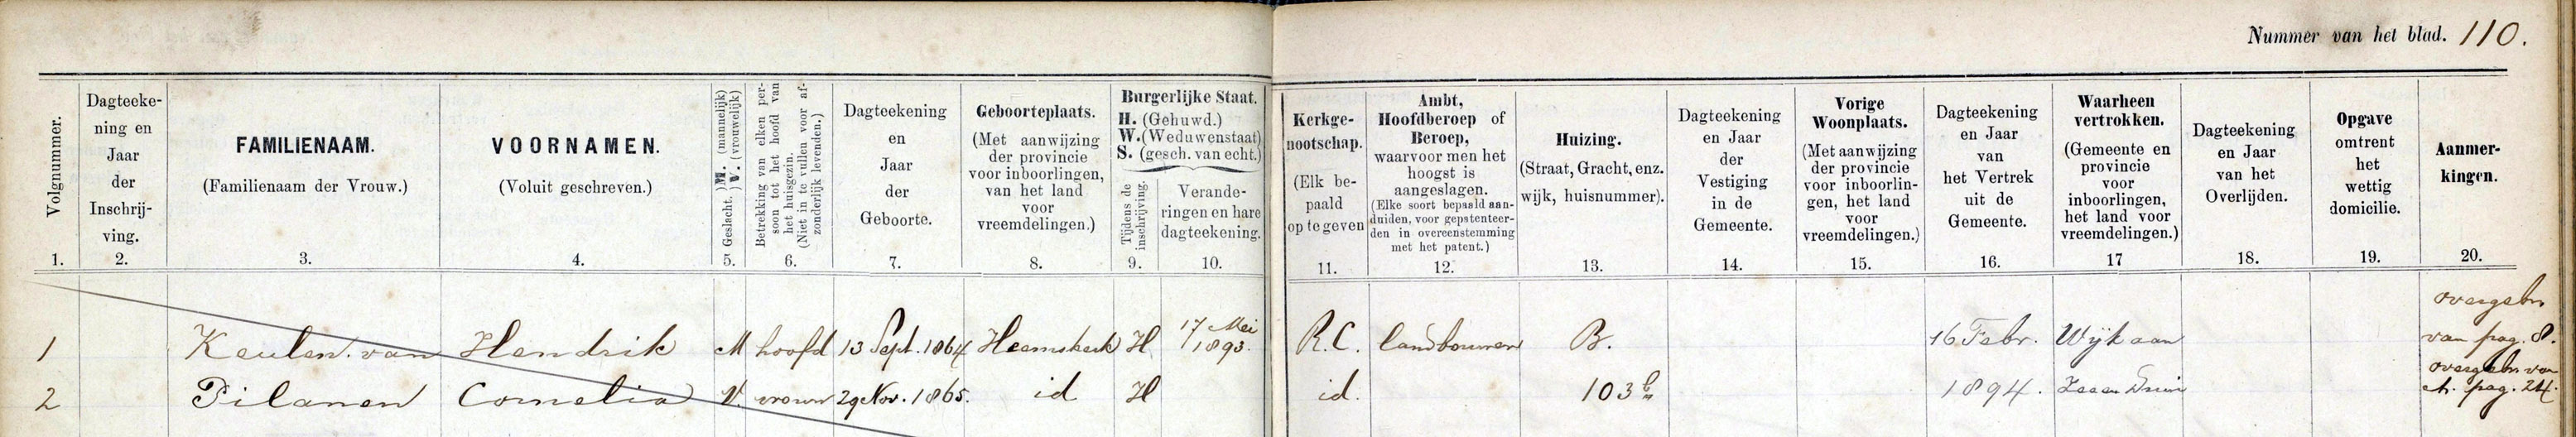 Nummer van het blad. 110.
Volgnummer.
1.
Dagteeke-
ning en
Jaar
der
Inschrij-
ving.
2.
FAMILIENAAM.
(Familienaam der Vrouw.)
3.
VOORNAMEN.
(Voluit geschreven.)
4.
Geslacht. M. (mannelijk) V. (vrouwelijk)
5.
Betrekking van elken per-
soon tot het hoofd van
het huisgezin.
(Niet in te vullen voor af-
zonderlijk levenden.)
6.
Dagteekening
en
Jaar
der
Geboorte.
7.
Geboorteplaats.
(Met aanwijzing
der provincie
voor inboorlingen,
van het land
voor
vreemdelingen.)
8.
Burgerlijke Staat.
H. (Gehuwd.)
W. (Weduwenstaat)
S. (gesch. van echt.)
Tijdens de
inschrijving.
9.
Verande-
ringen en hare
dagteekening.
10.
Kerkge-
nootschap.
(Elk be-
paald
op te geven
11.
Ambt,
Hoofdberoep of
Beroep,
waarvoor men het
hoogst is
aangeslagen.
(Elke soort bepaald aan-
duiden, voor gepatenteer-
den in overeenstemming
met het patent.)
12.
Huizing.
(Straat, Gracht, enz.
wijk, huisnummer).
13.
Dagteekening
en Jaar
der
Vestiging
in de
Gemeente.
14.
Vorige
Woonplaats.
(Met aanwijzing
der provincie
voor inboorlin-
gen, het land
voor
vreemdelingen.)
15.
Dagteekening
en Jaar
van
het Vertrek
uit de
Gemeente.
16.
Waarheen
vertrokken.
(Gemeente en
provincie
voor
inboorlingen,
het land voor
vreemdelingen.)
17
Dagteekening
en Jaar
van het
Overlijden.
18.
Opgave
omtrent
het
wettig
domicilie.
19.
Aanmer-
kingen.
20.
1 Keulen. van Hendrik M hoofd 13 Sept. 1864 Heemskerk H 17 Mei 1893. R.C. landbouwer B. 16 Febr. Wijk aan overgebr. van pag. 8.
2 Pilanen Cornelia V. vrouw 29 Nov. 1865. id H id. 103b 1894. Zee en Duin overgebr. van A. pag. 24.